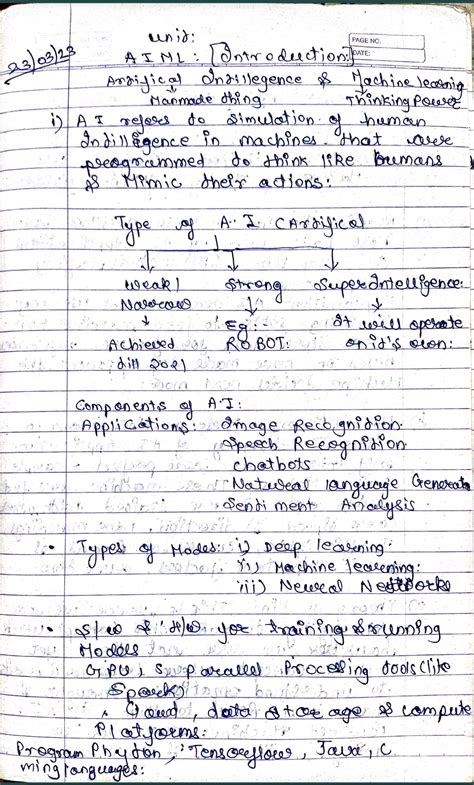 unit:
PAGE NO.
DATE:
23/03/23
AIML: [Introduction:]
Artificial Intillegence & Machine learnig
Manmade thing Thinking Power
i) AI refers to simulation of human
Intilligence in machines that are
preogrammed to think like humans
& Mimic their actions:
Type of A.I CArtificial
Weak/ Strong SuperIntelligence:
Narrow
Achieved Eg: It will operate
till 2021 ROBOT: on it's own:
Components of A.I:
Applications: Image Recognition
Speech Recognition
chatbots
Natural language Generatn
Sentiment Analysis
• Types of Models: i) Deep learning:
ii) Machine learning:
iii) Neural Networks
• S/W & H/W for training & running
Models
GPU, s parallel Processing tools(like
Spark)
, Cloud, data storage & compute
Platforms:
Program Phyton, Tensorflow, Java, C
minglanguages: